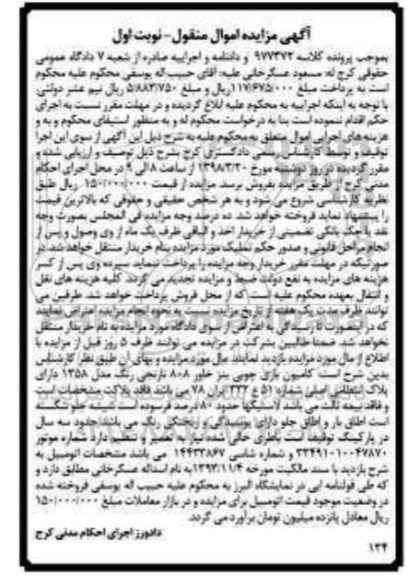 آگهی مزایده اموال منقول- نوبت اول
بموجب پرونده کلاسه ۹۷۷۳۷۲ و دادنامه و اجراییه صادره از شعبه ۷ دادگاه عمومی
حقوقی کرج له: مسعود عسگرخانی علیه: آقای حبیب اله یوسفی محکوم علیه محکوم
است به پرداخت مبلغ ۱۱۷/۶۷۵/۰۰۰ریال و مبلغ ۵/۸۸۳/۷۵۰ ریال نیم عشر دولتی.
با توجه به اینکه اجراییه به محکوم علیه ابلاغ گردیده و در مهلت مقرر نسبت به اجرای
حکم اقدام ننموده است بنا به درخواست محکوم له و به منظور استیفای محکوم به و
هزینه های اجرایی اموال متعلق به محکوم علیه به شرح ذیل این آگهی از سوی این اجرا
توقیف و توسط کارشناس رسمی دادگستری کرج بشرح ذیل توصیف و ارزیابی شده و
مقرر گردیده در روز دوشنبه مورخ ۱۳۹۸/۳/۲۰ از ساعت ۸ الی ۹ در محل اجرای احکام
مدنی کرج از طریق مزایده بفروش برسد. مزایده از قیمت ۱۵۰/۰۰۰/۰۰۰ ریال طبق
نظریه کارشناسی شروع می شود و به هر شخص حقیقی و حقوقی که بالاترین قیمت
را پیشنهاد نماید فروخته خواهد شد. ده درصد وجه مزایده فی المجلس بصورت وجه
نقد یا چک بانکی تضمینی از خریدار اخذ و الباقی ظرف یک ماه از وی وصول و پس از
انجام مراحل قانونی و صدور حکم تملیک مورد مزایده بنام خریدار منتقل خواهد شد. در
صورتیکه در مهلت مقرر خریدار وجه مزایده را پرداخت ننماید سپرده وی پس از کسر
هزینه های مزایده به نفع دولت ضبط و مزایده تجدید می گردد. کلیه هزینه های نقل
و انتقال بعهده محکوم علیه است که از محل فروش پرداخت خواهد شد. طرفین می
توانند ظرف مدت یک هفته از تاریخ مزایده نسبت به نحوه انجام مزایده اعتراض نمایند
که در اینصورت تا رسیدگی به اعتراض از سوی دادگاه مورد مزایده به نام خریدار منتقل
نخواهد شد. ضمنا طالبین بشرکت در مزایده می توانند ظرف ۵ روز قبل از مزایده با
اطلاع از مال مورد مزایده بازدید نمایند. مال مورد مزایده و بهای آن طبق نظر کارشناس
بدین شرح است: کامیون باری چوبی بنز خاور ۸۰۸ نارنجی رنگ مدل ۱۳۵۸ دارای
پلاک انتظامی اصلی شماره ۵۱ ع ۳۳۲ ایران ۷۸ می باشد فاقد پلاکت مشخصات است
و فاقد بیمه ثالث می باشد لاستیکها حدود ۸۰ درصد فرسوده است شیشه جلو شکسته
است اطاق بار و اطاق جلو دارای پوسیدگی و ریختگی رنگ می باشد حدود سه سال
در پارکینگ توقیف است باطری خالی شده نیاز به تعمیر و تنظیم دارد شماره موتور
۳۳۴۹۱۰۱۰۰۴۷۸۷۰ و شماره شاسی ۱۴۴۳۳۸۶۷ می باشد مشخصات اتومبیل به
شرح بازدید با سند مالکیت مورخه ۱۳۹۳/۱۱/۴به نام اسداله عسگرخانی مطابق دارد و
که طی قولنامه ایی در نمایشگاه البرز به محکوم علیه حبیب اله یوسفی فروخته شده
در وضعیت موجود قیمت اتومبیل برای مزایده و در بازار معاملات مبلغ ۱۵۰/۰۰۰/۰۰۰
ریال معادل پانزده میلیون تومان برآورد می گردد.
دادورز اجرای احکام مدنی کرج
۱۳۴